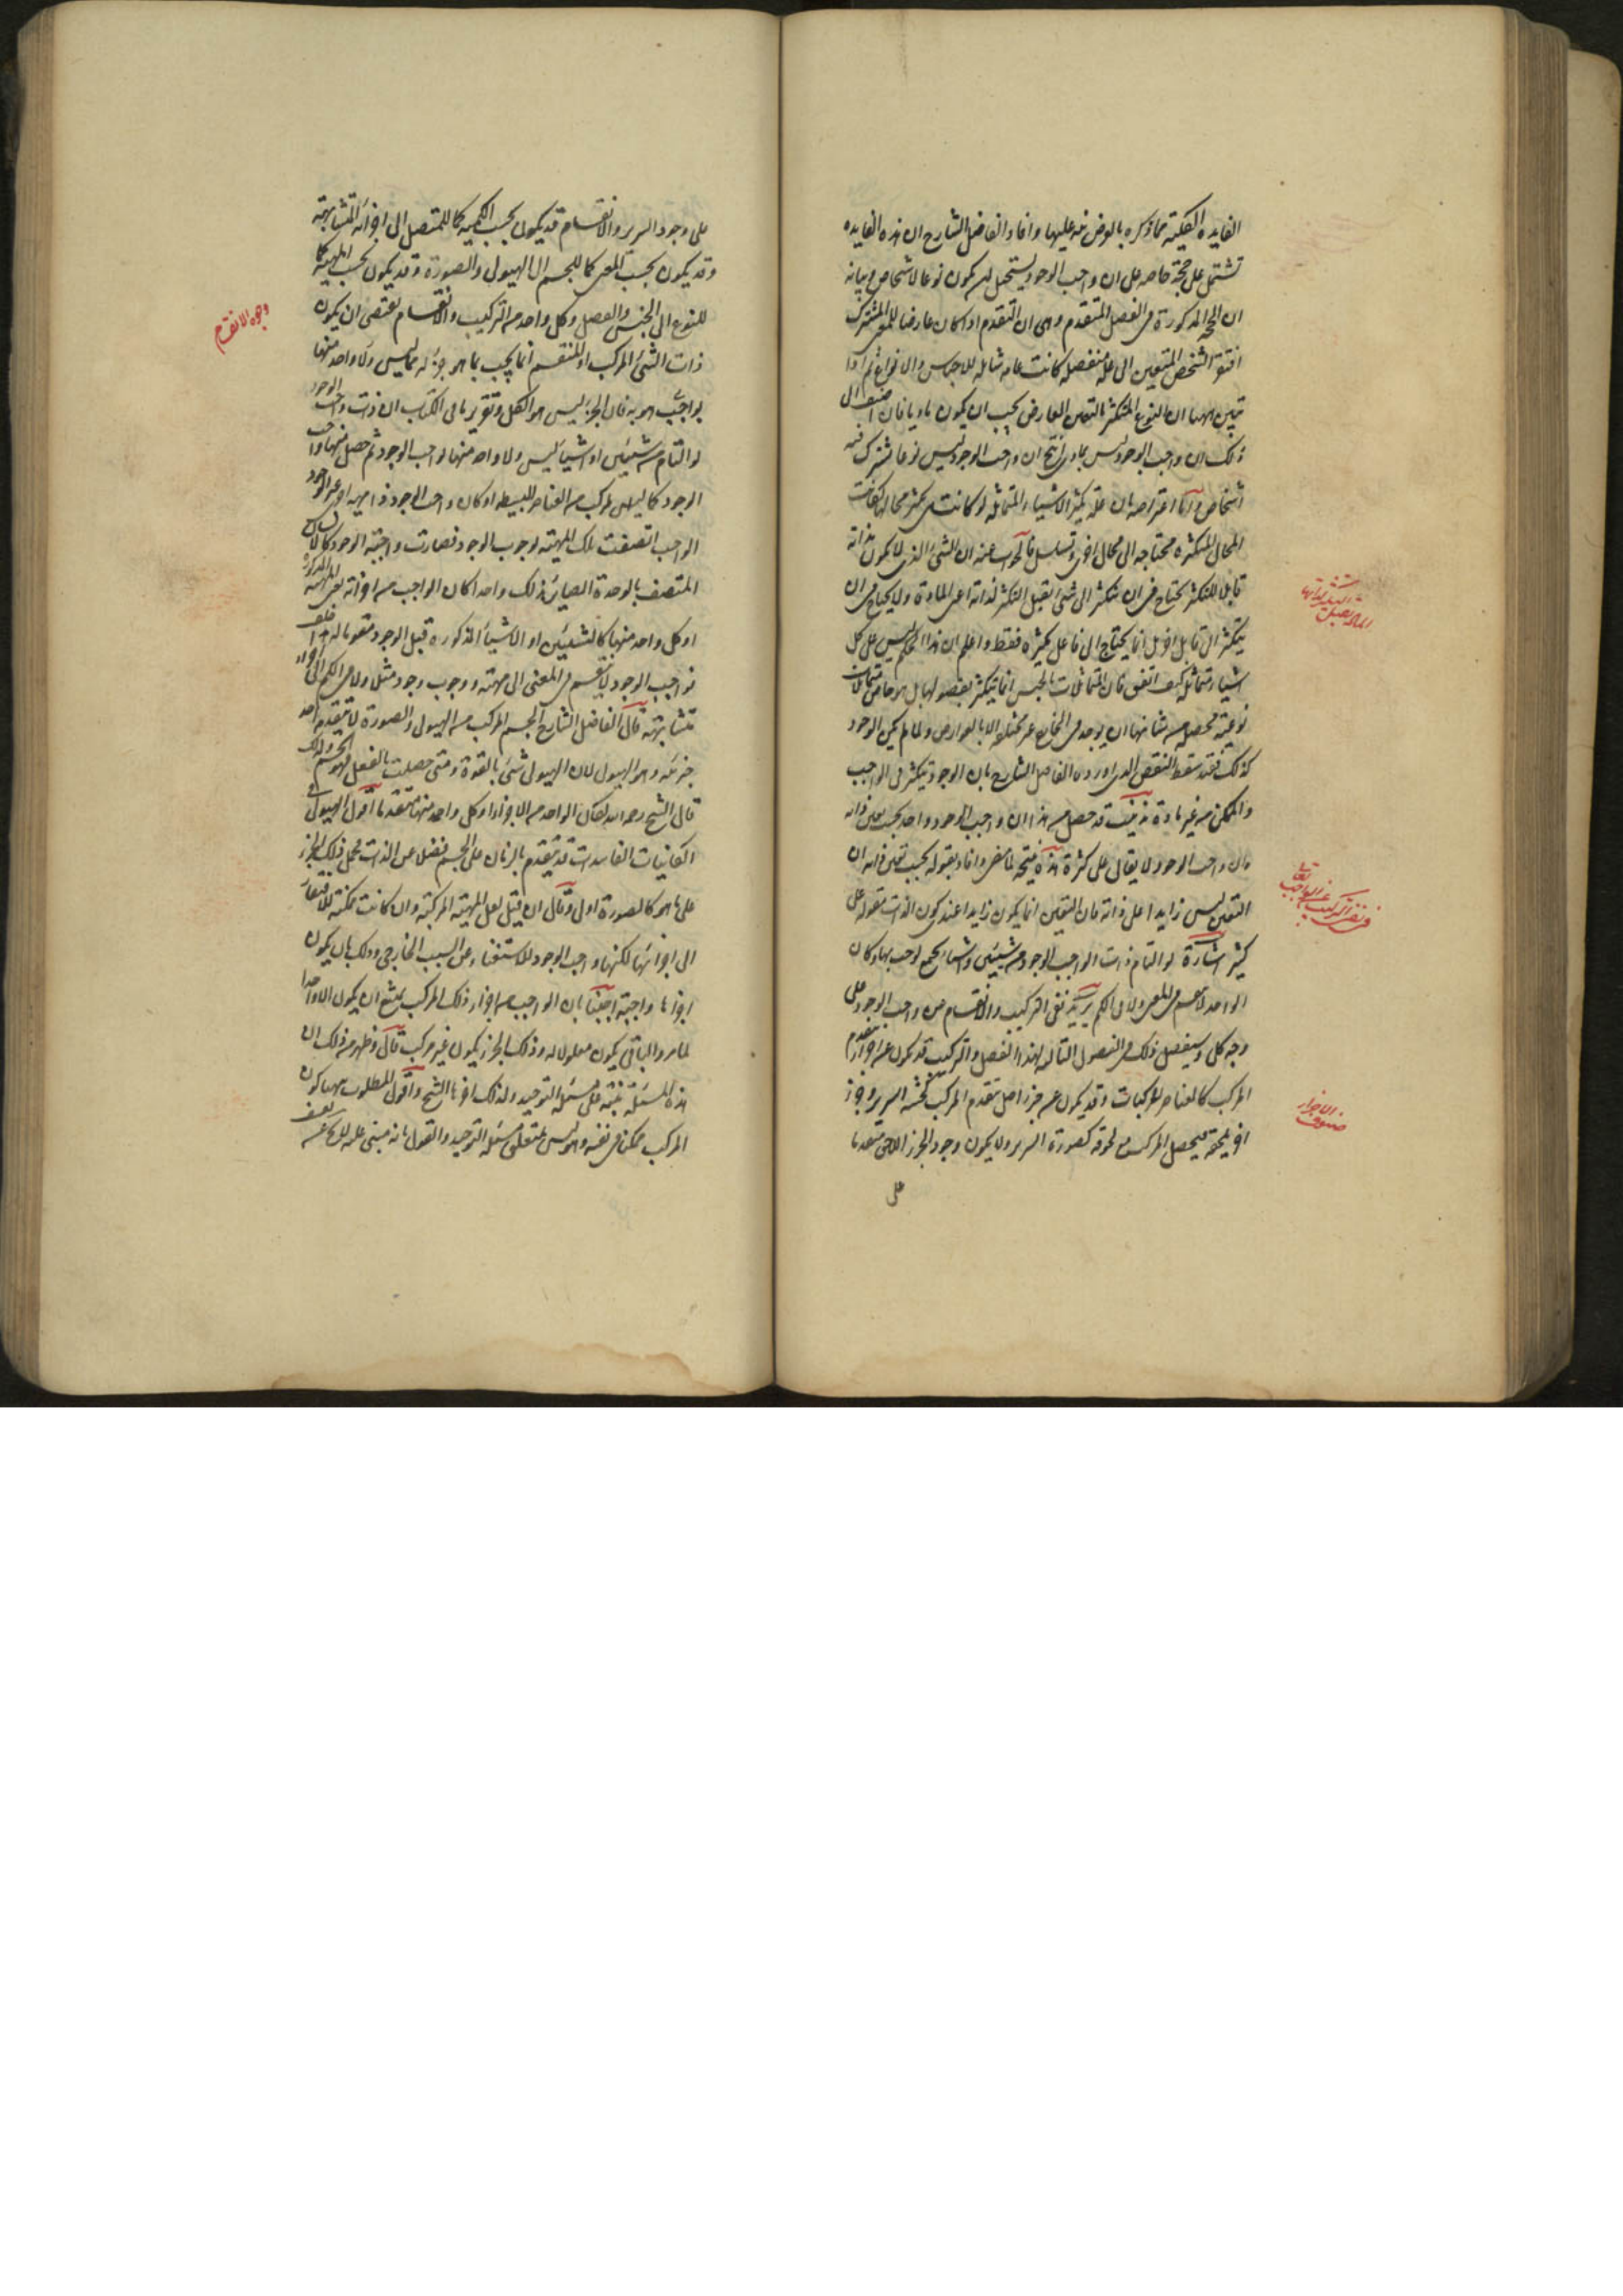 الفايدة الكلية مما ذكره بالعرض نبه عليها وافاد الفاضل الشارح ان هذه الفايدة
تشتمل على حجة خاصة على ان واجب الوجود يستحيل ان يكون نوعا لاشخاص وبيانه
ان الحجة المذكورة في الفصل المتقدم وهى ان المتقدم اذا كان عارضا للمعنى المشترك
افتقر الشخص المتعين الى علة منفصلة كانت عامة شاملة للاجناس والانواع ثم اذا
تبين ههنا ان النوع المتكثر بالتعين العارض يجب ان يكون ماديا فان اضيف الى
ذلك ان واجب الوجود ليس بمادى انتج ان واجب الوجود ليس نوعا تشترك فيه
اشخاص واما اعتراضه بان علة تكثر الاشياء المتماثلة لو كانت هى تكثر محالها لكانت
المحال المتكثرة محتاجة الى محال اخرى وتسلسل فالجواب عنه ان الشئ الذى لا يكون بذاته
قابلا للتكثر يحتاج فى ان يتكثر الى شئ يقبل التكثر لذاته اعنى المادة ولا يحتاج هى ان
يتكثر الى قابل اخر بل انما يحتاج الى فاعل يكثره فقط واعلم ان هذا الحكم ليس على كل
اشياء متماثلة كيف اتفق فان المتماثلات بالجنس انما يتكثر بفصولها بل هو خاص بمتماثلات
نوعية محصلة من شانها ان يوجد فى الخارج غير مختلفة الا بالعوارض ولما لم يكن الوجود
كذلك فقد سقط النقض الذى اورده الفاضل الشارح بان الوجود يتكثر فى الواجب
والممكن من غير مادة تذنيب قد حصل من هذا ان واجب الوجود واحد بحسب تعين ذاته
وان واجب الوجود لا يقال على كثرة هذه نتيجة لما مضى وافاد بقوله بحسب تعين ذاته ان
التعين ليس زايدا على ذاته فان التعين انما يكون زايدا عند كون الذات مقولة على
كثير اشارة لو التام ذات الواجب الوجود من شيئين او اشياء تجتمع لوجب بها وكان
الواحد لا ينقسم فى المعنى ولا فى الكم يريد نفى التركيب والانقسام عن واجب الوجود على
وجه كلى وسيفصل ذلك فى الفصول التالية لهذا الفصل والتركيب قد يكون عن اجزاء يتقدم
المركب كالعناصر للمركبات وقد يكون عن جزء اصل يتقدم المركب كخشب السرير وجزء
اخر يلحقه فيحصل المركب مع لحوقه كصورة السرير ولا يكون وجود الجزء اللاحق متقدما
على
فى نفى التركيب عن الواجب تعالى
صنوف الاجزاء
على وجود السرير والانقسام قد يكون بحسب الكمية كما للمتصل الى اجزائه المتشابهة
وقد يكون بحسب المعنى كما للجسم الى الهيولى والصورة وقد يكون بحسب الماهية كما
للنوع الى الجنس والفصل وكل واحد من التركيب والانقسام يقتضى ان يكون
ذات الشئ المركب او المنقسم انما يجب بما هو جزؤه مما ليس ولا واحد منها
بواجب هو به فان الجزء ليس هو الكل وتقرير ما فى الكتاب ان ذات واجب الوجود
لو التام من شيئين او اشياء ليس ولا واحد منها لواجب الوجود ثم حصل منها واجب
الوجود كما ليس لمركب من العناصر البسيطة او كان واجب الوجود ذا مهية اخرى غير الوجود
الواجب اتصفت تلك المهية بوجوب الوجود فصارت واجبة الوجود كالانسان
المتصف بالوحدة الصاير بذلك واحدا كان الواجب من اجزائه يعنى المهية المذكورة
او كل واحد منها كالشيئين او الاشياء المذكورة قبل الوجود مقوما له هذا خلف
فواجب الوجود لا ينقسم فى المعنى الى مهية ووجوب وجود مثلا ولا فى الكم الى اجزاء
متشابهة قال الفاضل الشارح الجسم المركب من الهيولى والصورة لا يتقدمه احد
جزئيه وهو الهيولى لان الهيولى شئ بالقوة ومتى حصلت بالفعل فهو الجسم ولذلك
قال الشيخ رحمه الله لكان الواحد من الاجزاء او كل واحد منها متقدما اقول الهيولى فى
الكائنات الفاسدات قد يتقدم بالزمان على الجسم فضلا عن الذات فحمل ذلك الجزء
على ما هو كالصورة اولى وقال ان قيل لعل المهية المركبة وان كانت ممكنة لافتقارها
الى اجزائها لكنها واجب الوجود للاستغناء عن السبب الخارجى وذلك بان يكون
اجزاؤها واجبة اجبنا بان الواجب من اجزاء ذلك المركب يمتنع ان يكون الا واحدا
لما مر والباقى يكون معلولا له وذلك الجزء يكون غير مركب قال وظهر من ذلك ان
هذه المسئلة مبنية على مسئلة التوحيد ولذلك اخرها الشيخ واقول المطلوب ههنا كون
المركب ممكنا فى نفسه وهو ليس متعلق بمسئلة التوحيد والقول بانه مبنى عليه لا يخ عن تعسف
وجوه الانقسام